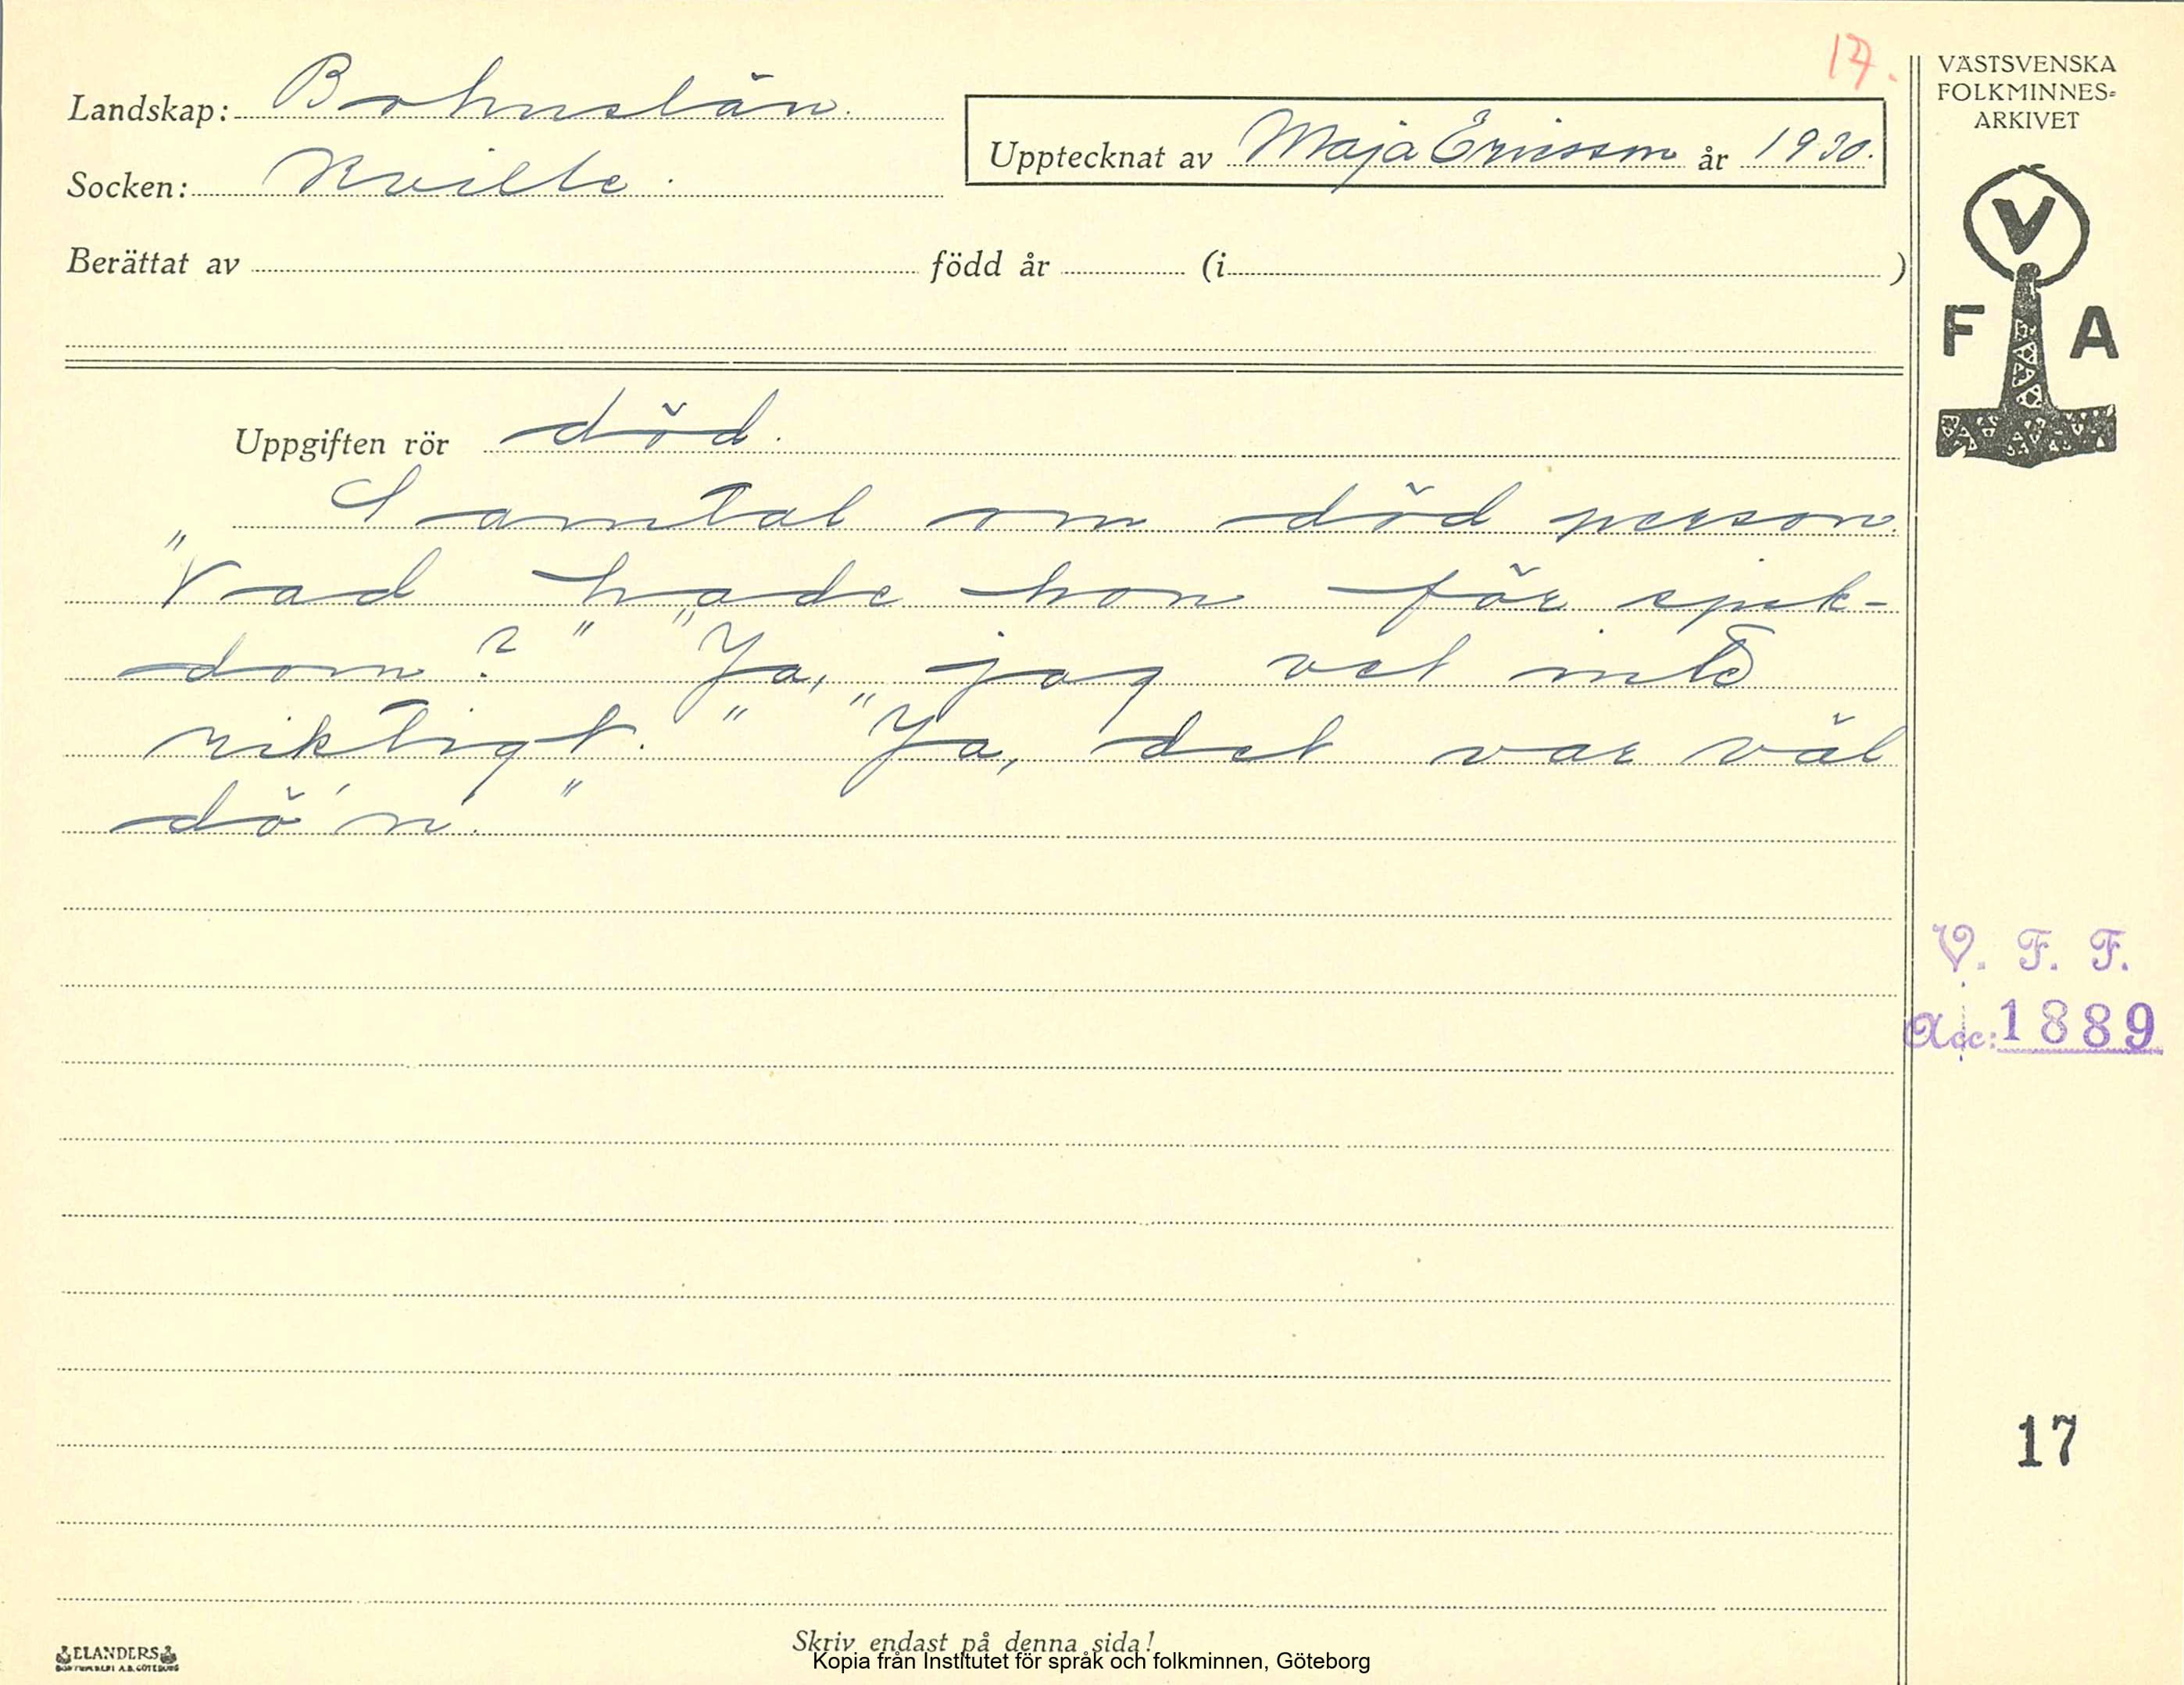 17.
Landskap: Bohuslän.
Upptecknat av Maja Ericsson år 1930.
Socken: Kville.
Berättat av född år (i )
Uppgiften rör död.
Samtal om död person.
"Vad hade hon för sjuk-
dom?" "Ja, jag vet inte
riktigt." "Ja, det var väl
dö'n."
VÄSTSVENSKA
FOLKMINNES-
ARKIVET
V
F A
V. F. F.
Acc: 1889
17
ELANDERS
Skriv endast på denna sida!
Kopia från Institutet för språk och folkminnen, Göteborg